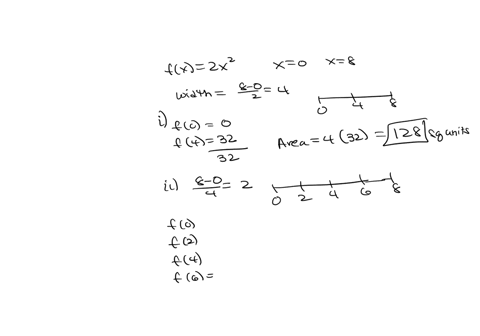 f(x) = 2x² x=0 x=8
width = 8-0/2 = 4
0 4 8
i) f(0) = 0
f(4) = 32
32
Area = 4(32) = 128 sq units
ii) 8-0/4 = 2
0 2 4 6 8
f(0)
f(2)
f(4)
f(6) =